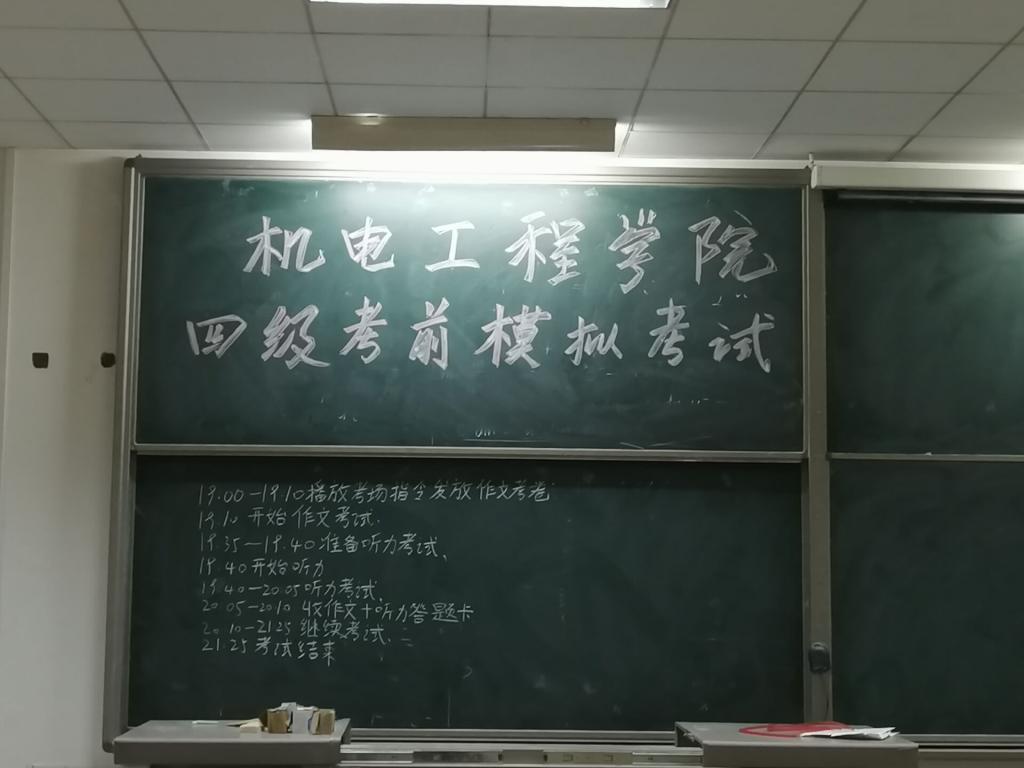 机电工程学院
四级考前模拟考试
19.00-19.10播放考场指令发放作文考卷
19.10 开始作文考试.
19.35-19.40准备听力考试、
19.40开始听力
19.40-20.05听力考试.
20.05-20.10 收作文+听力答题卡
20.10-21.25 继续考试.
21.25考试结束